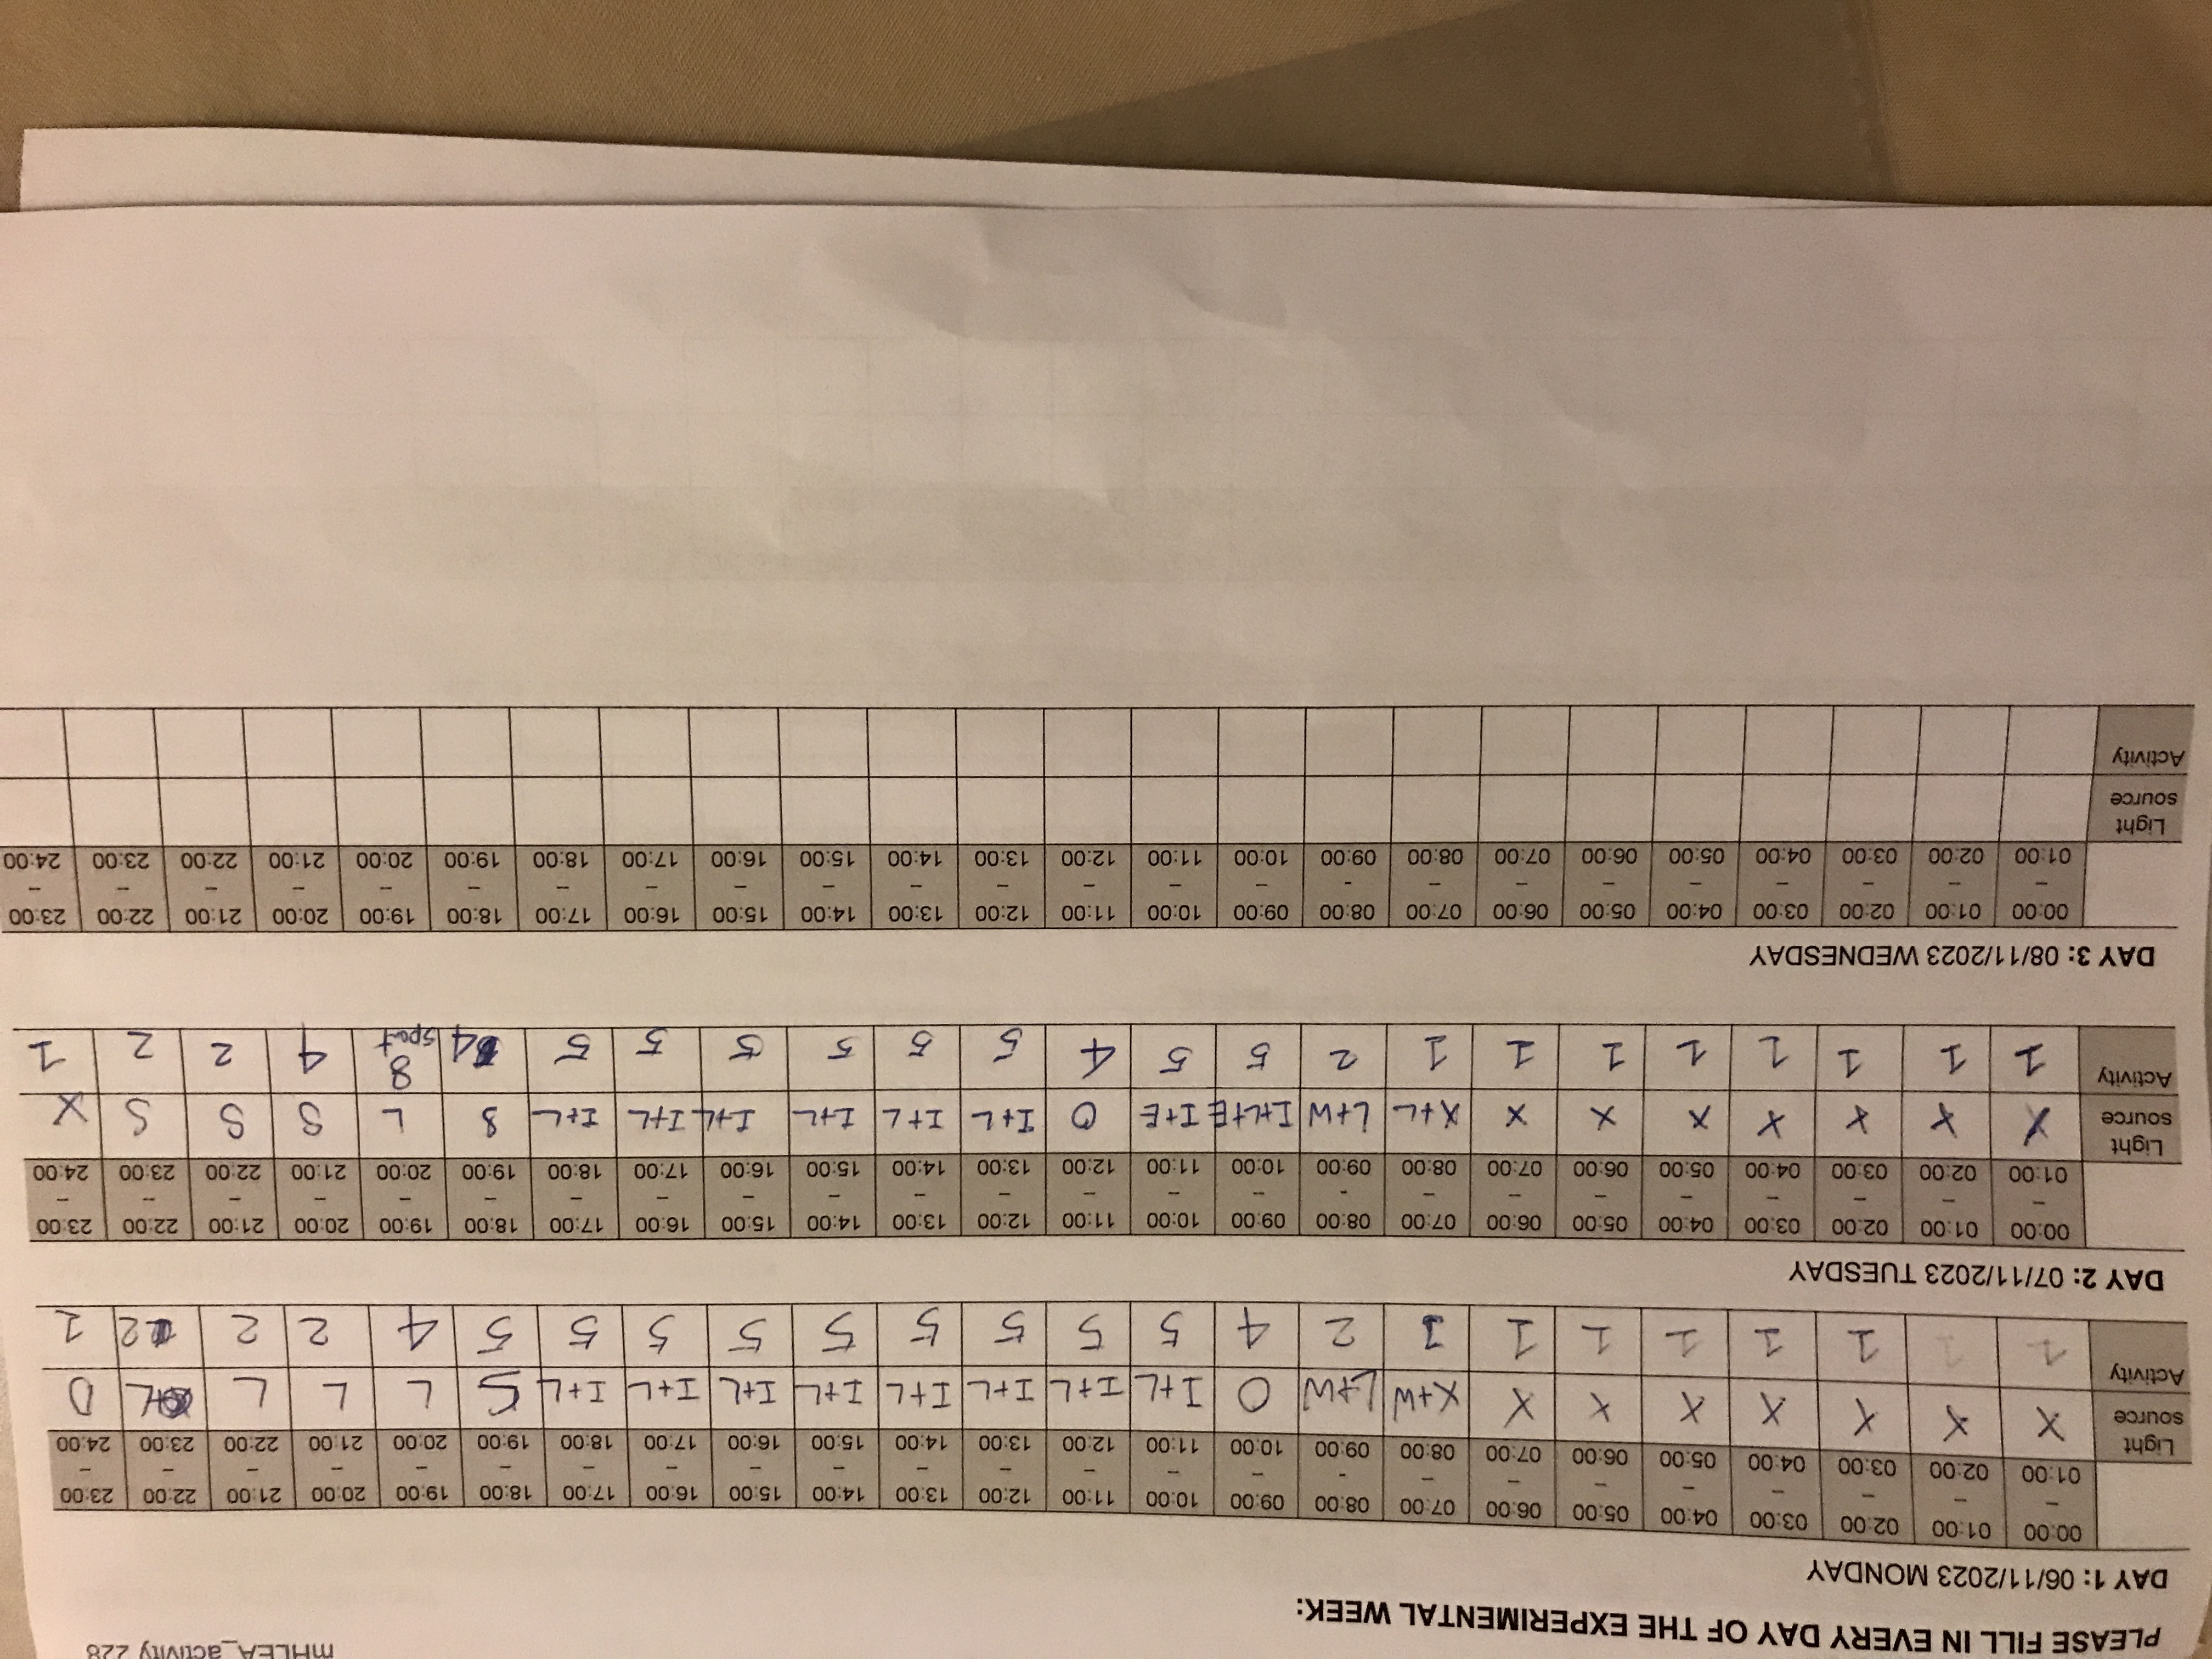 mHLEA_activity 228
PLEASE FILL IN EVERY DAY OF THE EXPERIMENTAL WEEK:
DAY 1: 06/11/2023 MONDAY
00:00 – 01:00 01:00 – 02:00 02:00 – 03:00 03:00 – 04:00 04:00 – 05:00 05:00 – 06:00 06:00 – 07:00 07:00 – 08:00 08:00 - 09:00 09:00 – 10:00 10:00 – 11:00 11:00 – 12:00 12:00 – 13:00 13:00 – 14:00 14:00 – 15:00 15:00 – 16:00 16:00 – 17:00 17:00 – 18:00 18:00 – 19:00 19:00 – 20:00 20:00 – 21:00 21:00 – 22:00 22:00 – 23:00 23:00 – 24:00
Light source X X X X X X X X+W L+W O I+L I+L I+L I+L I+L I+L I+L I+L S L L L L
Activity 1 1 1 1 1 1 1 1 2 4 5 5 5 5 5 5 5 5 5 4 2 2 2 1
DAY 2: 07/11/2023 TUESDAY
00:00 – 01:00 01:00 – 02:00 02:00 – 03:00 03:00 – 04:00 04:00 – 05:00 05:00 – 06:00 06:00 – 07:00 07:00 – 08:00 08:00 - 09:00 09:00 – 10:00 10:00 – 11:00 11:00 – 12:00 12:00 – 13:00 13:00 – 14:00 14:00 – 15:00 15:00 – 16:00 16:00 – 17:00 17:00 – 18:00 18:00 – 19:00 19:00 – 20:00 20:00 – 21:00 21:00 – 22:00 22:00 – 23:00 23:00 – 24:00
Light source X X X X X X X X+L L+W I+L+E I+E O I+L I+L I+L I+L I+L I+L S L S S S X
Activity 1 1 1 1 1 1 1 1 2 5 5 4 5 5 5 5 5 5 4 8 sport 4 2 2 1
DAY 3: 08/11/2023 WEDNESDAY
00:00 – 01:00 01:00 – 02:00 02:00 – 03:00 03:00 – 04:00 04:00 – 05:00 05:00 – 06:00 06:00 – 07:00 07:00 – 08:00 08:00 - 09:00 09:00 – 10:00 10:00 – 11:00 11:00 – 12:00 12:00 – 13:00 13:00 – 14:00 14:00 – 15:00 15:00 – 16:00 16:00 – 17:00 17:00 – 18:00 18:00 – 19:00 19:00 – 20:00 20:00 – 21:00 21:00 – 22:00 22:00 – 23:00 23:00 – 24:00
Light source
Activity